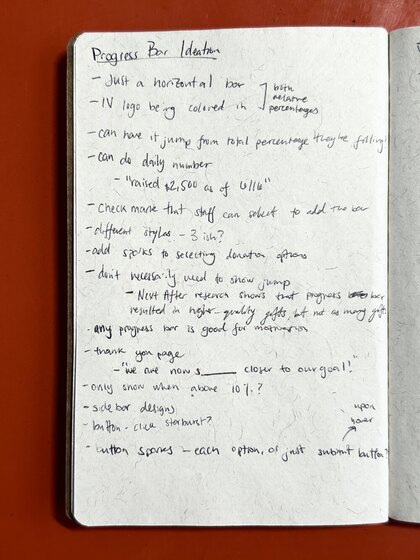 Progress Bar Ideation
- Just a horizontal bar
- IV logo being colored in
both
relative
percentages
- can have it jump from total percentage they're filling
- can do daily number
- "raised $2,500 as of 6/16"
- Check mark that staff can select to add the bar
- different styles - 3 ish?
- add sparks to selecting donation options
- don't necessarily need to show jump
- Next After research shows that progress bar
resulted in higher-quality gifts, but not as many gifts
- any progress bar is good for motivation
- thank you page
- "we are now $____ closer to our goal!"
- only show when above 10%?
- side bar designs
- button-click starburst?
upon
hover
- button sparks - each option, or just submit button?